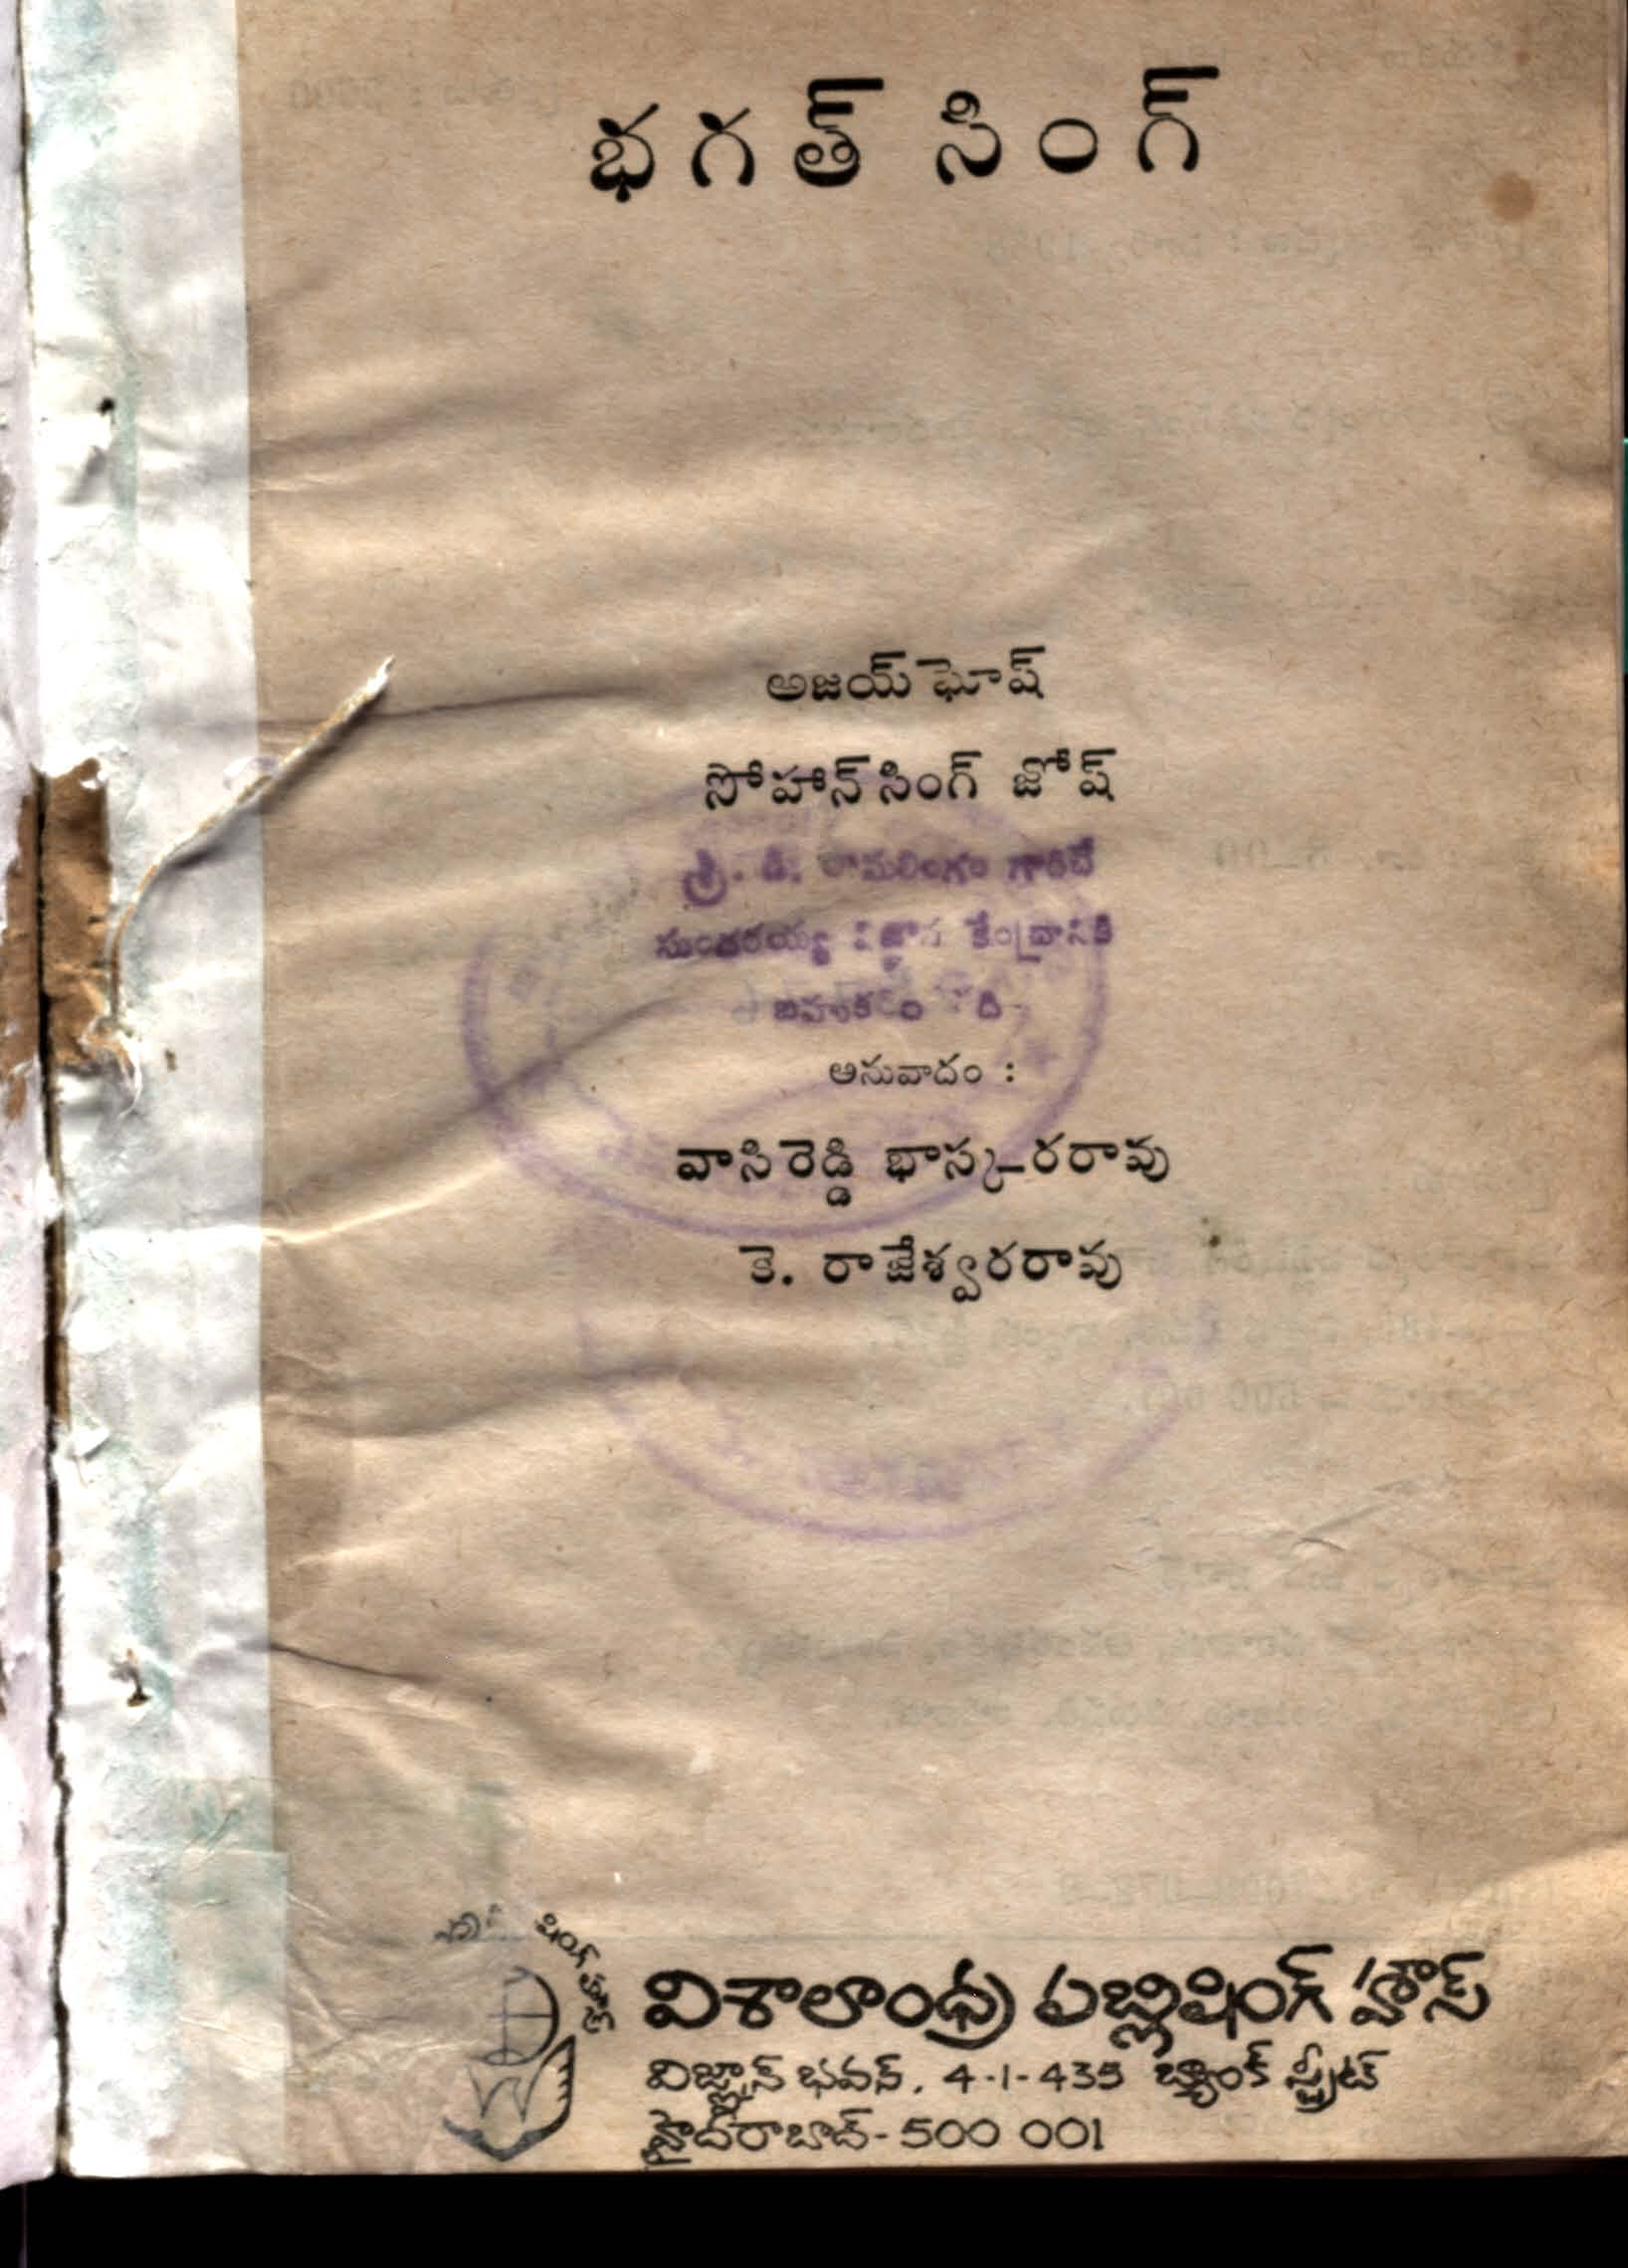 భగత్ సింగ్
అజయ్ ఘోష్
సోహాన్ సింగ్ జోష్
శ్రీ. డి. రామలింగం గారిచే
సుందరయ్య విజ్ఞాన కేంద్రానికి
అనువాదం :
వాసిరెడ్డి భాస్కరరావు
కె. రాజేశ్వరరావు
షింగ్ హౌస్
విశాలాంధ్ర పబ్లిషింగ్ హౌస్
విజ్ఞాన్ భవన్, 4-1-435 బ్యాంక్ స్ట్రీట్
హైదరాబాద్-500 001